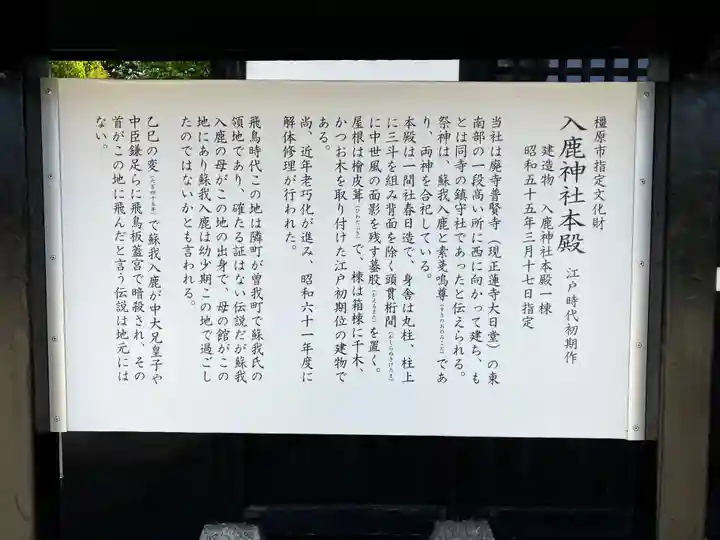 橿原市指定文化財
入鹿神社本殿 江戸時代初期作
建造物 入鹿神社本殿一棟
昭和五十五年三月十七日指定
当社は廃寺普賢寺(現正蓮寺大日堂)の東
南部の一段高い所に西に向かって建ち、も
とは同寺の鎮守社であったと伝えられる。
祭神は、蘇我入鹿と素戔嗚尊(すさのおのみこと)であ
り、両神を合祀している。
本殿は一間社春日造で、身舎は丸柱、柱上
に三斗を組み背面を除く頭貫桁間(かしらぬきけたま)
に中世風の面影を残す蟇股(かえるまた)を置く。
屋根は檜皮葺(ひわだぶき)で、棟は箱棟に千木、
かつお木を取り付けた江戸初期位の建物で
ある。
尚、近年老巧化が進み、昭和六十一年度に
解体修理が行われた。
飛鳥時代この地は隣町が曽我町で蘇我氏の
領地であり、確たる証はない伝説だが蘇我
入鹿の母がこの地の出身で、母の館がこの
地にあり蘇我入鹿は幼少期この地で過ごし
たのではないかとも言われる。
乙巳の変(六百四十五年)で蘇我入鹿が中大兄皇子や
中臣鎌足らに飛鳥板蓋宮で暗殺され、その
首がこの地に飛んだと言う伝説は地元には
ない。